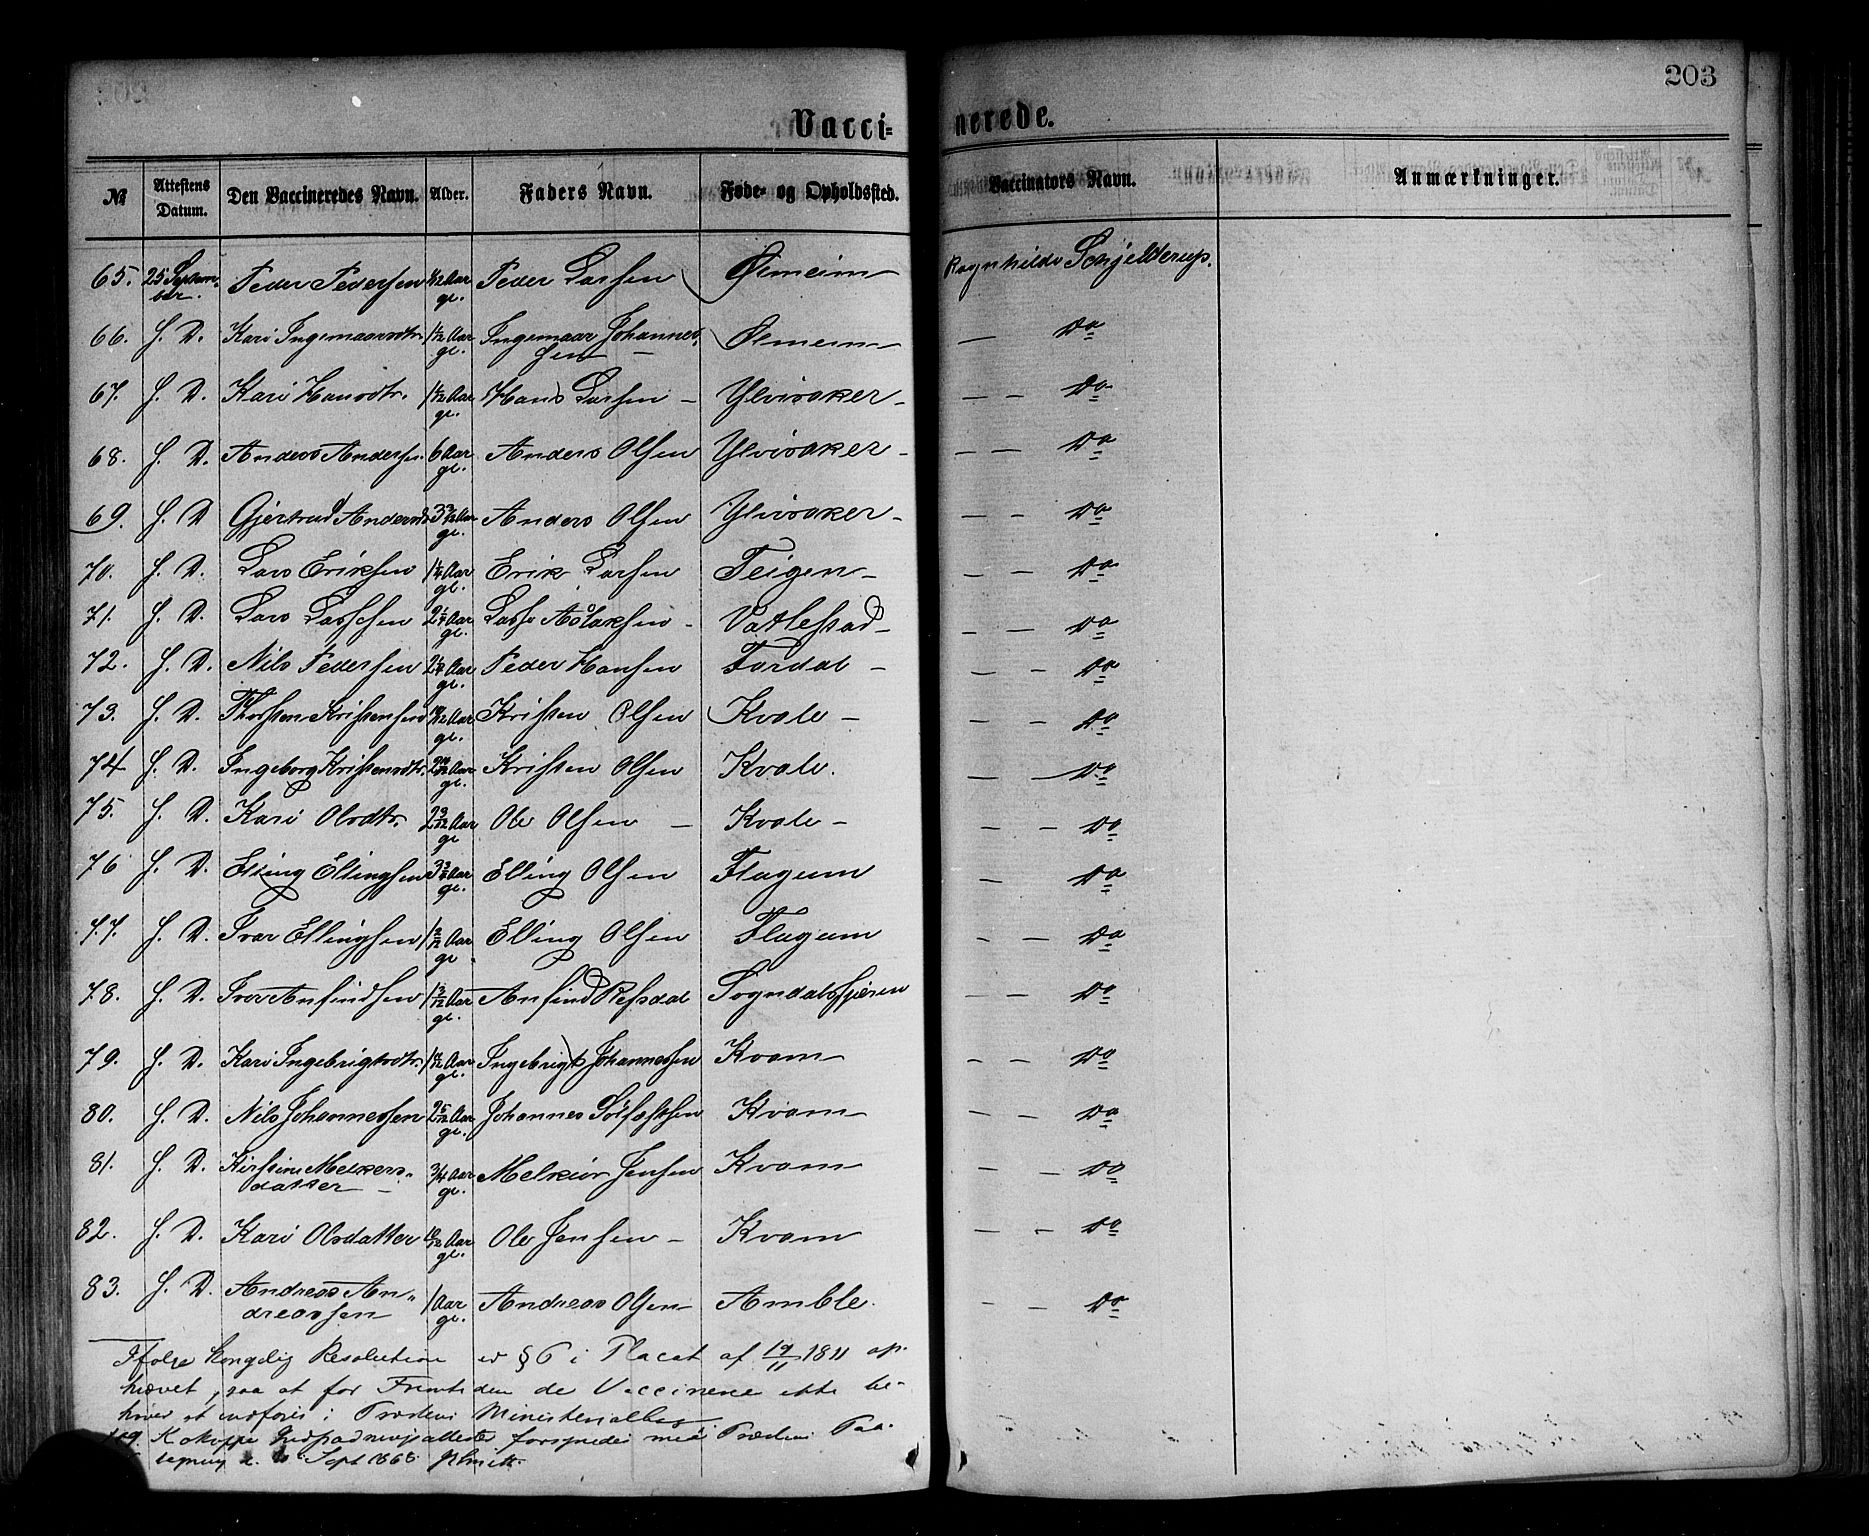 203
Vacci=
nerede.
№ Attestens Datum. Den Vaccineredes Navn. Alder. Faders Navn. Føde- og Opholdssted. Vaccinators Navn. Anmærkninger.
65. 25 Septem-ber. Peder Pedersen Aar gl. Peder Larsen Ølmeim Ragnhilde Schjelderup.
66. S. D. Kari Ingemaarsdtr. Aar gl. Ingemaar Johannessen — Ølmeim — Do
67. S. D. Kari Hansdtr. Aar gl. Hans Larsen — Ylvisaker — — — Do
68. S. D. Anders Andersen 6 Aar gl. Anders Olsen Ylvisaker — — — Do
69. S. D Gjertrud Andersd Aar gl. Anders Olsen Ylvisaker — — — Do
70. S. D. Lars Eriksen 1 1/4 Aar gl. Erik Larsen Teigen — — — Do
71. S. D. Lars Lasssen Aar gl. Lasse Aslaksen — Vatlestad — — — Do
72. S. D. Nils Pedersen Aar gl. Peder Hansen Fardal — — — Do
73. S. D. Thorsten Kristensen Aar gl. Kristen Olsen Kvale — — — Do
74 S. D. Ingeborg Kristensdtr. Aar gl. Kristen Olsen Kvale. — — Do
75. S. D. Kari Olsdtr. Aar gl Ole Olsen — Kvale — — — Do
76 S. D. Elling Ellingsen Aar gl. Elling Olsen Flugum — Do
77. S. D. Ivar Ellingsen 1 2/12 Aar gl Elling Olsen Flugum — — Do
78. S. D. Iver Anfindsen 1 3/12 Aar gl. Anfind Refsdal Sogndalsfjæren — — Do
79. S. D. Kari Ingebrigtsdtr. Aar gl. Ingebrigt Johannessen Kvam — — — Do
80. S. D. Nils Johannessen 2 5/12 Aar gl. Johannes Sjurfastsen Kvam — — — Do
81. S. D. Kirstine Melkers-datter — 3/4 Aar gl. Melkior Jensen Kvam — — — Do
82. S. D. Kari Olsdatter Aar gl. Ole Jensen — Kvam — — Do
83. S. D. Andreas An-dreassen 1 Aar gl. Andreas Olsen Amble. — — Do
Ifølge kongelig Resolution er § 6 i Placat af 19/11 1811 op-
hævet, saa at for Fremtiden de Vaccinerte ikke be-
høver at indføres i Præstens Ministerialbog
Kokoppe Indpodningsattester forsynedes med Præstens Paa-
tegning Sept 1868